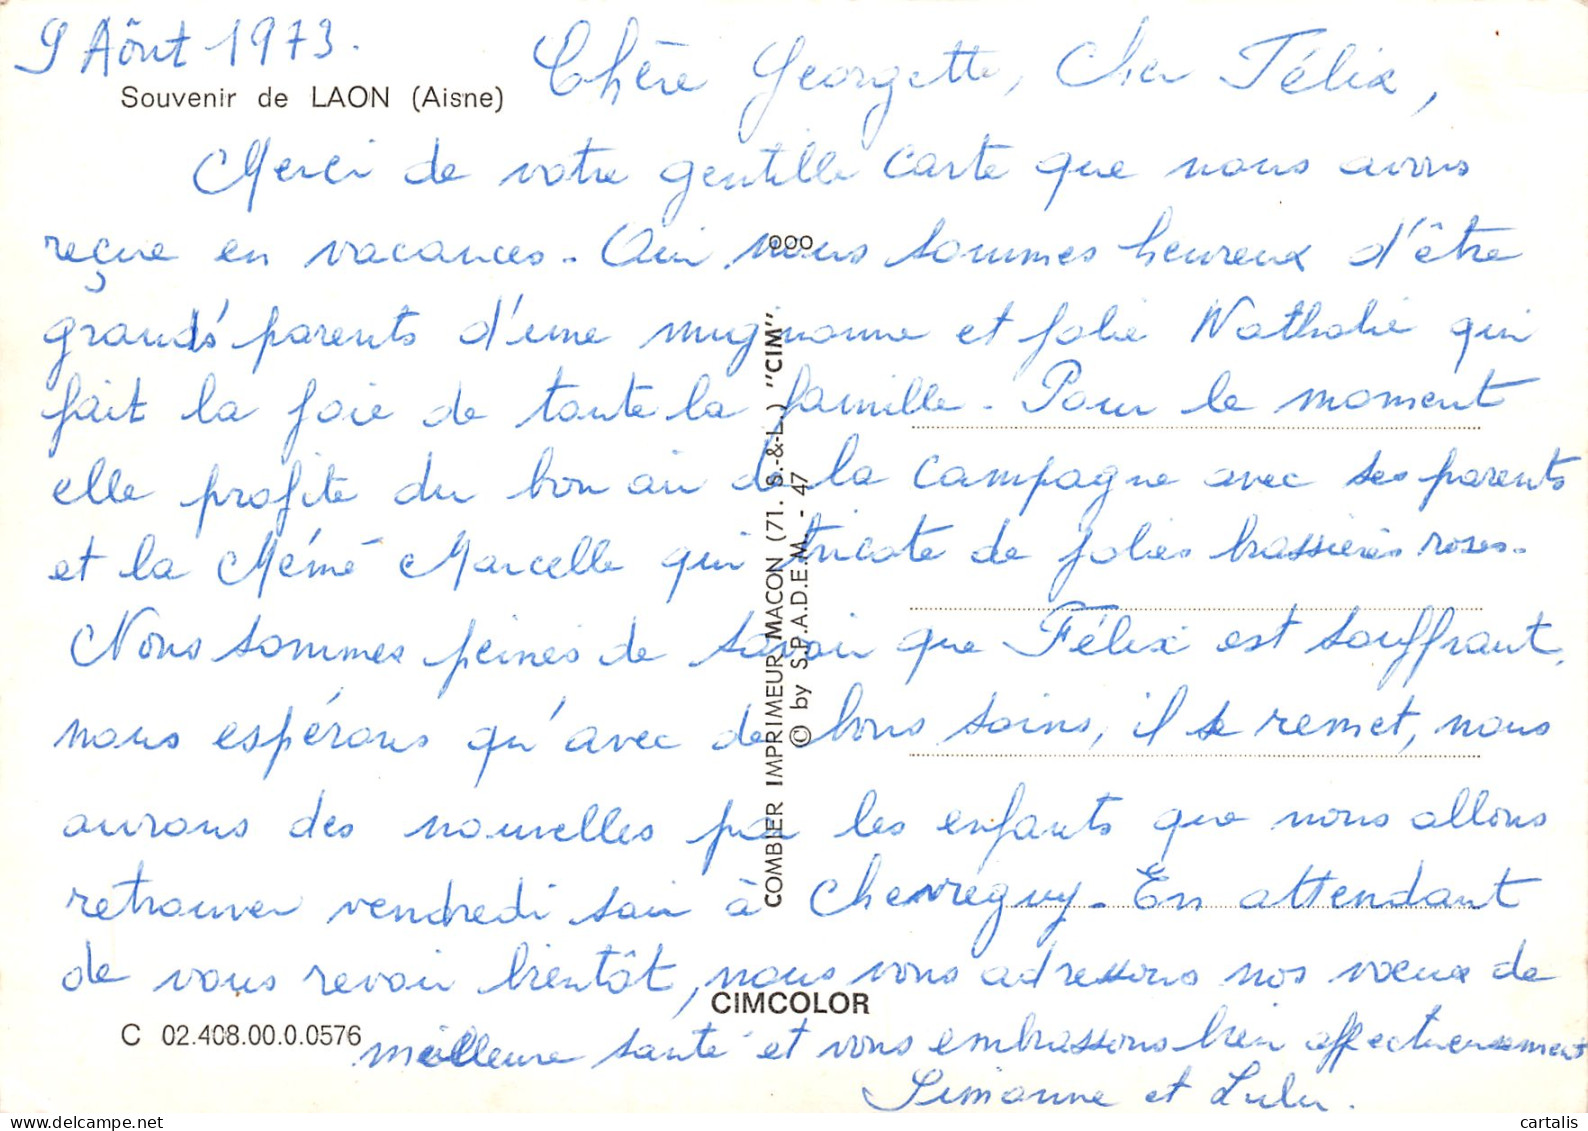 9 Aôut 1973.
Souvenir de LAON (Aisne)
Chère Georgette, Cher Félix,
Merci de votre gentille carte que nous avons
reçue en vacances. Oui nous sommes heureux d'être
grands parents d'une mignonne et jolie Nathalie qui
fait la joie de toute la famille. Pour le moment
elle profite du bon air de la campagne avec ses parents
et la Mémé Marcelle qui tricote de jolies brassières roses.
Nous sommes peinés de savoir que Félix est souffrant,
nous espérons qu'avec de bons soins, il se remet, nous
aurons des nouvelles par les enfants que nous allons
retrouver vendredi soir à Chevregny. En attendant
de vous revoir bientôt, nous vous adressons nos voeux de
meilleure santé et vous embrassons bien affectueusement
Simonne et Lulu.
000
COMBIER IMPRIMEUR MACON (71. S.-&-L.) "CIM"
© by S.P.A.D.E.M. - 47
CIMCOLOR
C 02.408.00.0.0576
cartalis